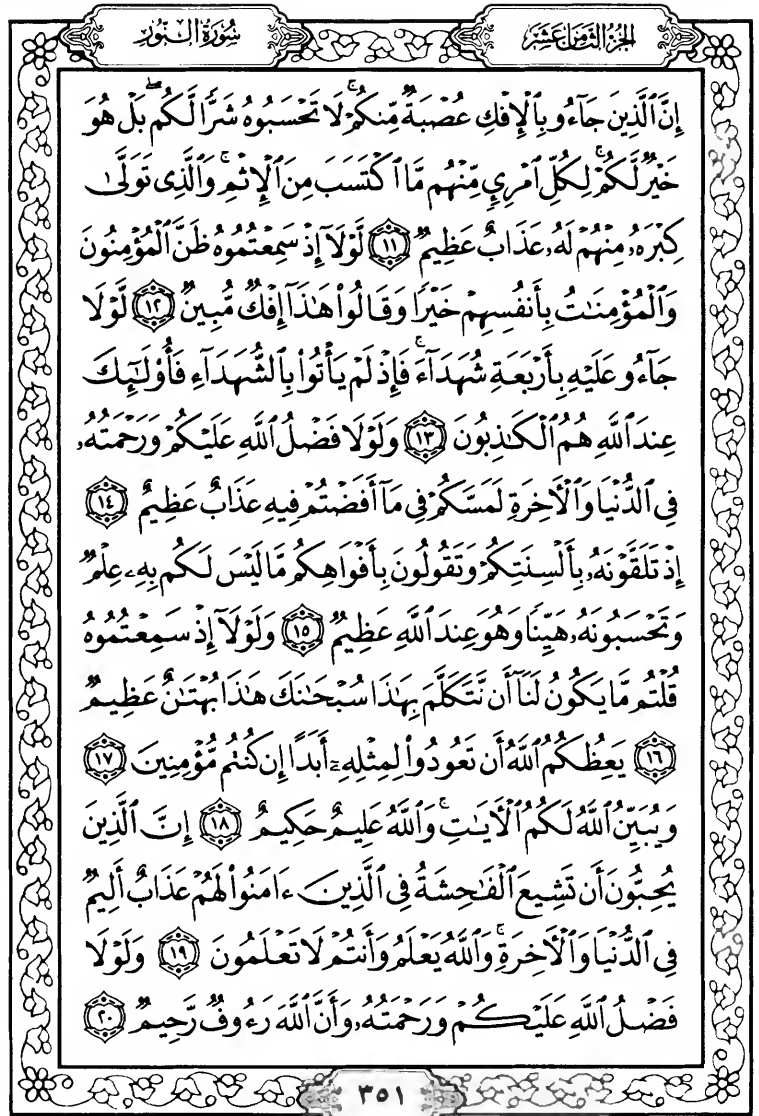 سُورَةُ النُّورِ
الجُزْءُ الثَّامِنَ عَشَرَ
إِنَّ ٱلَّذِينَ جَآءُو بِٱلْإِفْكِ عُصْبَةٌ مِّنكُمْ ۚ لَا تَحْسَبُوهُ شَرًّا لَّكُم ۖ بَلْ هُوَ
خَيْرٌ لَّكُمْ ۚ لِكُلِّ ٱمْرِئٍ مِّنْهُم مَّا ٱكْتَسَبَ مِنَ ٱلْإِثْمِ ۚ وَٱلَّذِى تَوَلَّىٰ
كِبْرَهُۥ مِنْهُمْ لَهُۥ عَذَابٌ عَظِيمٌ ١١ لَّوْلَآ إِذْ سَمِعْتُمُوهُ ظَنَّ ٱلْمُؤْمِنُونَ
وَٱلْمُؤْمِنَٰتُ بِأَنفُسِهِمْ خَيْرًا وَقَالُوا۟ هَٰذَآ إِفْكٌ مُّبِينٌ ١٢ لَّوْلَا
جَآءُو عَلَيْهِ بِأَرْبَعَةِ شُهَدَآءَ ۚ فَإِذْ لَمْ يَأْتُوا۟ بِٱلشُّهَدَآءِ فَأُو۟لَٰٓئِكَ
عِندَ ٱللَّهِ هُمُ ٱلْكَٰذِبُونَ ١٣ وَلَوْلَا فَضْلُ ٱللَّهِ عَلَيْكُمْ وَرَحْمَتُهُۥ
فِى ٱلدُّنْيَا وَٱلْءَاخِرَةِ لَمَسَّكُمْ فِى مَآ أَفَضْتُمْ فِيهِ عَذَابٌ عَظِيمٌ ١٤
إِذْ تَلَقَّوْنَهُۥ بِأَلْسِنَتِكُمْ وَتَقُولُونَ بِأَفْوَاهِكُم مَّا لَيْسَ لَكُم بِهِۦ عِلْمٌ
وَتَحْسَبُونَهُۥ هَيِّنًا وَهُوَ عِندَ ٱللَّهِ عَظِيمٌ ١٥ وَلَوْلَآ إِذْ سَمِعْتُمُوهُ
قُلْتُم مَّا يَكُونُ لَنَآ أَن نَّتَكَلَّمَ بِهَٰذَا سُبْحَٰنَكَ هَٰذَا بُهْتَٰنٌ عَظِيمٌ
١٦ يَعِظُكُمُ ٱللَّهُ أَن تَعُودُوا۟ لِمِثْلِهِۦٓ أَبَدًا إِن كُنتُم مُّؤْمِنِينَ ١٧
وَيُبَيِّنُ ٱللَّهُ لَكُمُ ٱلْءَايَٰتِ ۚ وَٱللَّهُ عَلِيمٌ حَكِيمٌ ١٨ إِنَّ ٱلَّذِينَ
يُحِبُّونَ أَن تَشِيعَ ٱلْفَٰحِشَةُ فِى ٱلَّذِينَ ءَامَنُوا۟ لَهُمْ عَذَابٌ أَلِيمٌ
فِى ٱلدُّنْيَا وَٱلْءَاخِرَةِ ۚ وَٱللَّهُ يَعْلَمُ وَأَنتُمْ لَا تَعْلَمُونَ ١٩ وَلَوْلَا
فَضْلُ ٱللَّهِ عَلَيْكُمْ وَرَحْمَتُهُۥ وَأَنَّ ٱللَّهَ رَءُوفٌ رَّحِيمٌ ٢٠
٣٥١